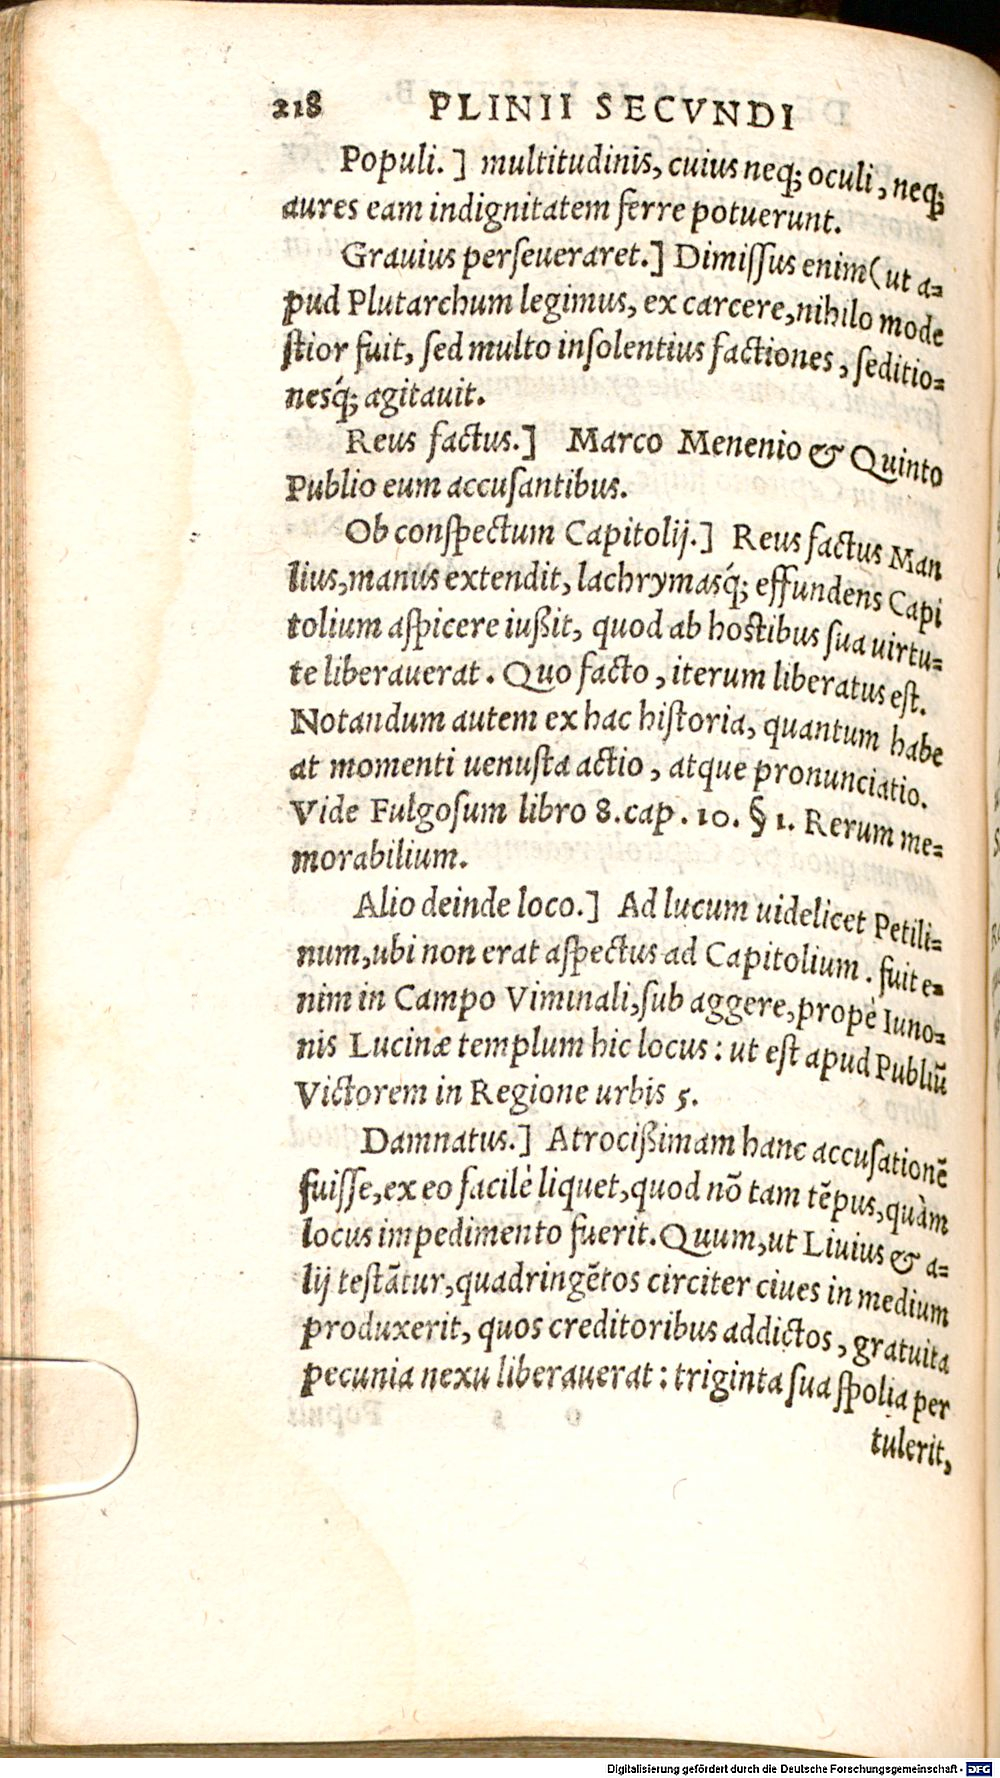 218 PLINII SECVNDI
Populi.] multitudinis, cuius neq; oculi, neq;
aures eam indignitatem ferre potuerunt.
Grauius perseueraret.] Dimissus enim (ut a-
pud Plutarchum legimus, ex carcere, nihilo mode
stior fuit, sed multo insolentius factiones, seditio-
nesq́; agitauit.
Reus factus.] Marco Menenio & Quinto
Publio eum accusantibus.
Ob conspectum Capitolij.] Reus factus Man
lius, manus extendit, lachrymasq́; effundens Capi
tolium aspicere iußit, quod ab hostibus sua uirtu-
te liberauerat. Quo facto, iterum liberatus est.
Notandum autem ex hac historia, quantum habe
at momenti uenusta actio, atque pronunciatio.
Vide Fulgosum libro 8. cap. 10. § 1. Rerum me-
morabilium.
Alio deinde loco.] Ad lucum uidelicet Petili-
num, ubi non erat aspectus ad Capitolium. fuit e-
nim in Campo Viminali, sub aggere, propè Iuno-
nis Lucinæ templum hic locus: ut est apud Publiũ
Victorem in Regione urbis 5.
Damnatus.] Atrocißimam hanc accusationẽ
fuisse, ex eo facilè liquet, quod nõ tam tẽpus, quàm
locus impedimento fuerit. Quum, ut Liuius & a-
lij testãtur, quadringẽtos circiter ciues in medium
produxerit, quos creditoribus addictos, gratuita
pecunia nexu liberauerat: triginta sua spolia per
tulerit,
Digitalisierung gefördert durch die Deutsche Forschungsgemeinschaft - DFG